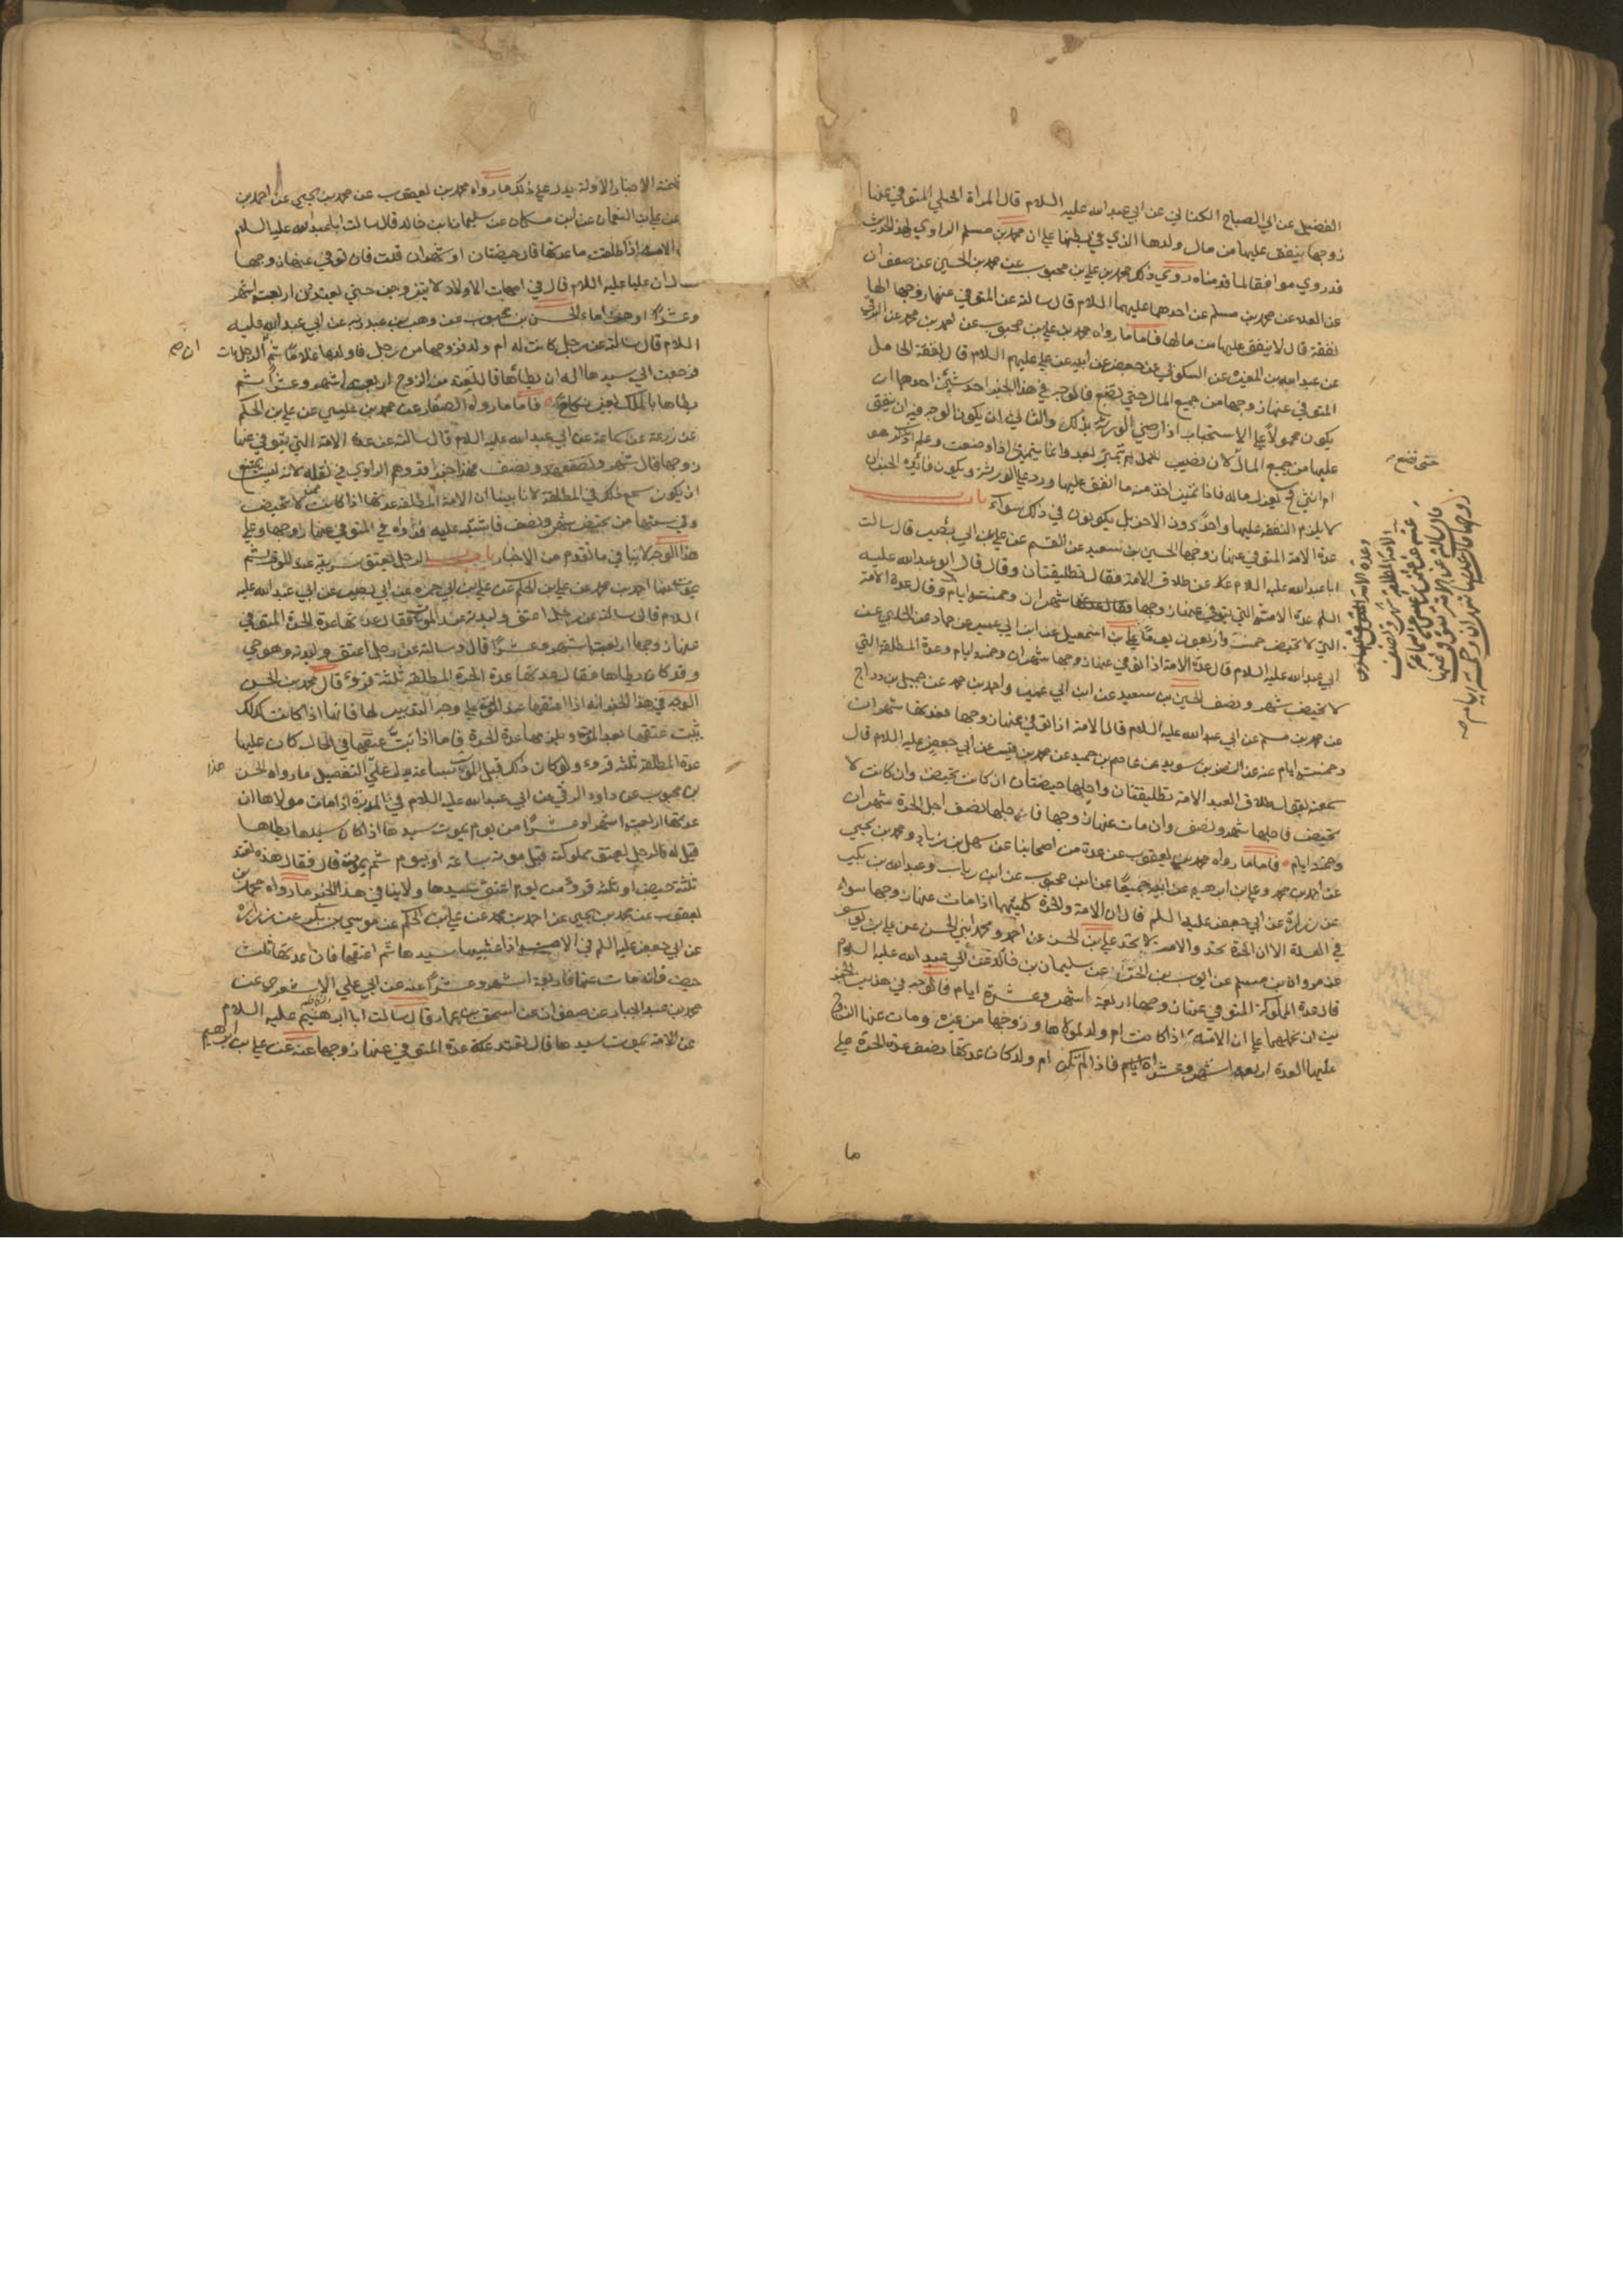 الفضيل عن ابي الصباح الكناني عن ابي عبد الله عليه السلام قال المراة الحبلي المتوفي عنها
زوجها ينفق عليها من مال ولدها الذي في بطنها علي ان محمد بن مسلم الراوي لهذا الحديث
قد روي موافقا لما قدمناه روي ذلك محمد بن علي بن محبوب عن محمد بن الحسين عن صفوان
عن العلا عن محمد بن مسلم عن احدهما عليهما السلام قال سالته عن المتوفي عنها زوجها الها
نفقة قال لا ينفق عليها من مالها فاما ما رواه محمد بن علي بن محبوب عن احمد بن محمد عن البرقي
عن عبد الله بن المغيرة عن السكوني عن جعفر عن ابيه عن علي عليهم السلام قال نفقة الحامل
المتوفي عنها زوجها من جميع المال حتي تضع فالوجه في هذا الخبر احد شيئين احدهما ان
يكون محمولا علي الاستحباب اذا رضي الورثة بذلك والثاني ان يكون الوجه فيه ان ينفق
عليها من جميع المال لان نصيب الحمل لم يتميز بعد وانما يتميز اذا وضعت وعلم اذكر هو
ام انثي فح يعزل ماله فاذا تميز اخذ منه ما انفق عليها ورد علي الورثة ويكون فائدة الخبر ان
لا يلزم النفقة عليها واحدا دون الاخر بل يكونون في ذلك سواء باب
عدة الامة المتوفي عنها زوجها الحسين بن سعيد عن القسم عن علي عن ابي بصير قال سالت
ابا عبد الله عليه السلام عن طلاق الامة فقال تطليقتان وقال قال ابو عبد الله عليه
السلم عدة الامة التي يتوفي عنها زوجها شهران وخمسة ايام وقال عدة الامة
التي لا تحيض خمسة واربعون يوما علي بن اسمعيل عن ابن ابي عمير عن حماد عن الحلبي عن
ابي عبد الله عليه السلام قال عدة الامة اذا توفي عنها زوجها شهران وخمسة ايام وعدة المطلقة التي
لا تحيض شهر ونصف الحسين بن سعيد عن ابن ابي عمير واحمد بن محمد عن جميل بن دراج
عن محمد بن مسلم عن ابي عبد الله عليه السلام قال الامة اذا توفي عنها زوجها فعدتها شهران
وخمسة ايام عنه عن النضر بن سويد عن عاصم بن حميد عن محمد بن قيس عن ابي جعفر عليه السلام قال
سمعته يقول طلاق العبد الامة تطليقتان واجلها حيضتان ان كانت تحيض وان كانت لا
تحيض فاجلها شهر ونصف وان مات عنها زوجها فاجلها نصف اجل الحرة شهران
وخمسة ايام فاما ما رواه محمد بن يعقوب عن عدة من اصحابنا عن سهل بن زياد ومحمد بن يحيي
عن احمد بن محمد وعلي بن ابرهيم عن ابيه جميعا عن ابن محبوب عن ابن رياب وعبد الله بن بكير
عن زرارة عن ابي جعفر عليه السلم قال ان الامة والحرة كلتيهما اذا مات عنها زوجها سواء
في العدة الا ان الحرة تحد والامة لا تحد علي بن الحسن عن احمد ومحمد ابني الحسن عن علي بن
عن مروان بن مسلم عن ايوب بن الحر عن سليمان بن خالد عن ابي عبد الله عليه السلام
قال عدة المملوكة المتوفي عنها زوجها اربعة اشهر وعشرة ايام فالوجه في هذين الخبر
ين ان نحملهما علي ان الامة اذا كانت ام ولد لمولاها وزوجها من غيره ومات عنها الزوج
عليها العدة اربعة اشهر وعشرة ايام فاذا لم تكن ام ولد كان عدتها نصف عدة الحرة علي
ما
حتي تضع
وعدة الامة
الامة المطلقة شهر ونصف
قال سالته عن الامة يتوفي عنها
زوجها قال عدتها شهران وخمسة ايام
الاخبار الاولة يدل علي ذلك ما رواه محمد بن يعقوب عن محمد بن يحيي عن احمد بن
عن علي بن النعمان عن ابن مسكان عن سليمان بن خالد قال سالت ابا عبد الله عليه السلام
الامة اذا طلقت ما عدتها قال حيضتان او شهران قلت فان توفي عنها زوجها
ان عليا عليه السلام قال في امهات الاولاد لا يتزوجن حتي يعتددن اربعة اشهر
وعشرا وهن اماء الحسن بن محبوب عن وهب بن عبد ربه عن ابي عبد الله عليه
السلام قال سالته عن رجل كانت له ام ولد فزوجها من رجل فاولدها غلاما ثم ان الرجل مات
فرجعت الي سيدها اله ان يطأها قال تعتد من الزوج اربعة اشهر وعشرا ثم
يطاها بالملك بغير نكاح فاما ما رواه الصفار عن محمد بن عيسي عن علي بن الحكم
عن زرعة عن سماعة عن ابي عبد الله عليه السلام قال سالته عن عدة الامة التي يتوفي عنها
زوجها قال شهر ونصف فهذا خبر قد وهم الراوي في نقله لانه ليس يمتنع
ان يكون سمع ذلك في المطلقة لانا بينا ان الامة المطلقة عدتها اذا كانت لا تحيض
وفي سنها من تحيض شهر ونصف فاشتبه عليه فرواه في المتوفي عنها زوجها وعلي
هذا الوجه لا ينافي ما تقدم من الاخبار باب الرجل يعتق سريته عند الموت ثم
يموت عنها احمد بن محمد عن علي بن الحكم عن علي بن ابي حمزة عن ابي بصير عن ابي عبد الله عليه
السلام قال سالته عن رجل اعتق وليدته عند الموت فقال عدتها عدة الحرة المتوفي
عنها زوجها اربعة اشهر وعشرا قال وسالته عن رجل اعتق وليدته وهو حي
وقد كان يطاها فقال عدتها عدة الحرة المطلقة ثلثة قروء قال محمد بن الحسن
الوجه في هذا الخبر انه اذا اعتقها عند الموت علي وجه التدبير لها فانها اذا كانت كذلك
يثبت عتقها بعد الموت ويلزمها عدة الحرة فاما اذا بت عتقها في الحال كان عليها
عدة المطلقة ثلثة قروء ولو كان ذلك قبل الموت بساعة يدل علي التفصيل ما رواه الحسن
بن محبوب عن داود الرقي عن ابي عبد الله عليه السلام في المدبرة اذا مات مولاها ان
عدتها اربعة اشهر وعشرا من يوم يموت سيدها اذا كان سيدها يطاها
قيل له فالرجل يعتق مملوكته قبل موته بساعة او بيوم ثم يموت قال فقال هذه تعتد
ثلثة حيض او ثلثة قروء من يوم اعتقها سيدها ولا ينافي هذا الخبر ما رواه محمد بن
يعقوب عن محمد بن يحيي عن احمد بن محمد عن علي بن الحكم عن موسي بن بكر عن زرارة
عن ابي جعفر عليه السلم في الامة اذا غشيها سيدها ثم اعتقها فان عدتها ثلث
حيض فان مات عنها فاربعة اشهر وعشرا عنه عن ابي علي الاشعري عن
محمد بن عبد الجبار عن صفوان عن اسحق بن عمار قال سالت ابا ابرهيم عليه السلام
عن الامة يموت سيدها قال تعتد عدة المتوفي عنها زوجها عنه عن علي بن ابرهيم